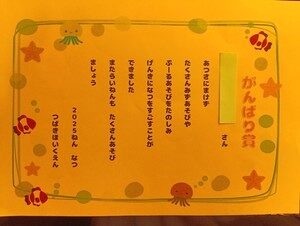 がんばり賞
さん
あつさにまけず
たくさんみずあそびや
ぷーるあそびをたのしみ
げんきになつをすごすことが
できました
またらいねんも たくさんあそび
ましょう
2025ねん なつ
つばきほいくえん